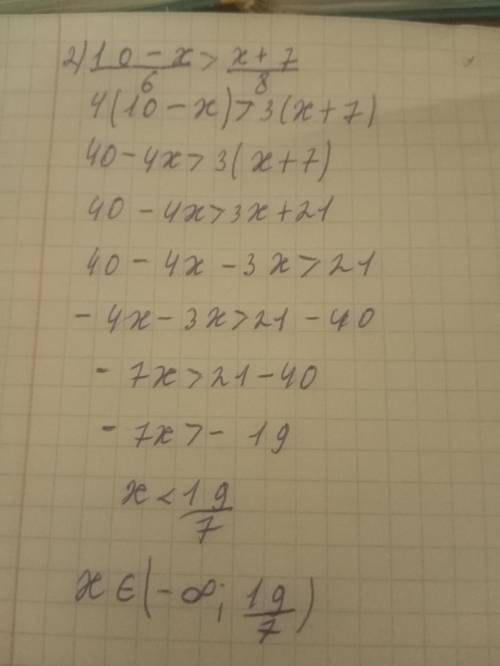 2) 10 - x / 6 > x + 7 / 8
4(10 - x) > 3(x + 7)
40 - 4x > 3(x + 7)
40 - 4x > 3x + 21
40 - 4x - 3x > 21
- 4x - 3x > 21 - 40
- 7x > 21 - 40
- 7x > - 19
x < 19 / 7
x ∈ (- ∞; 19 / 7)